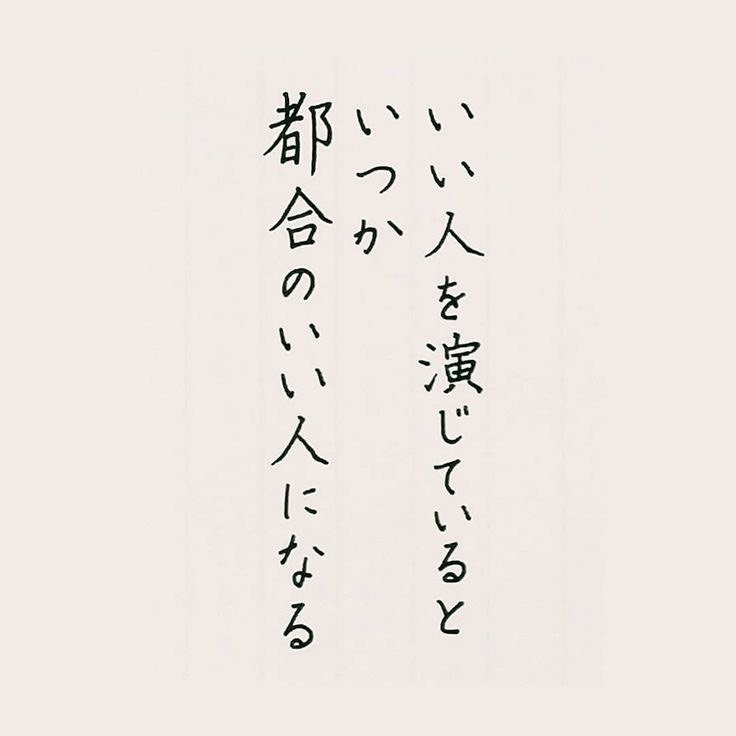 いい人を演じていると
いつか
都合のいい人になる